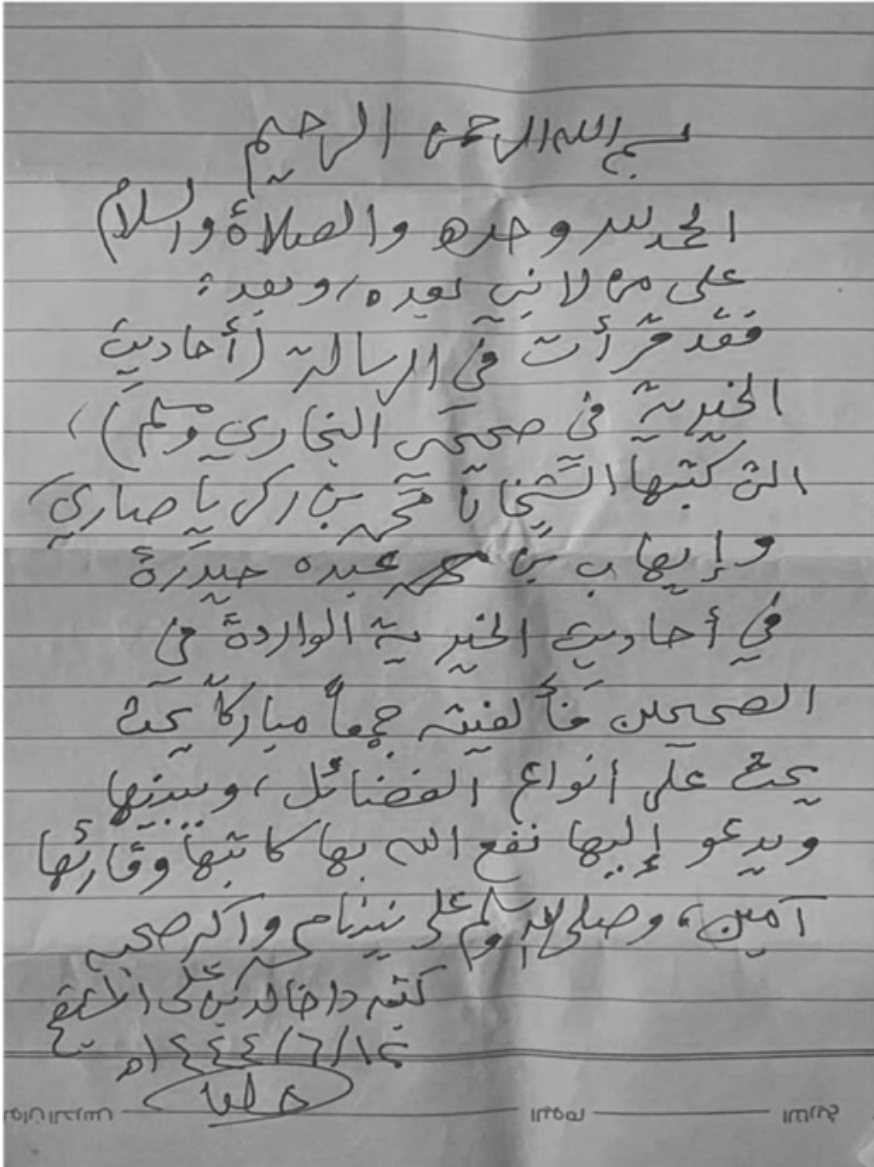 بسم الله الرحمن الرحيم
الحمد لله وحده والصلاة والسلام
على من لا نبي بعده، وبعد:
فقد قرأت في الرسالة (أحاديث
الخيرية في صحيحي البخاري ومسلم)،
التي كتبها الشيخان محمد بن زكريا صاري
وإيهاب بن محمد عبده حيدرة
في أحاديث الخيرية الواردة في
الصحيحين فألفيته جمعاً مباركاً يحث
يحث على أنواع الفضائل، ويبينها
ويدعو إليها نفع الله بها كاتبها وقارئها
آمين، وصلى الله وسلم على نبينا محمد وآله وصحبه
كتبه د/خالد بن علي المشيقح
١٤٤٤/٦/١٤هـ